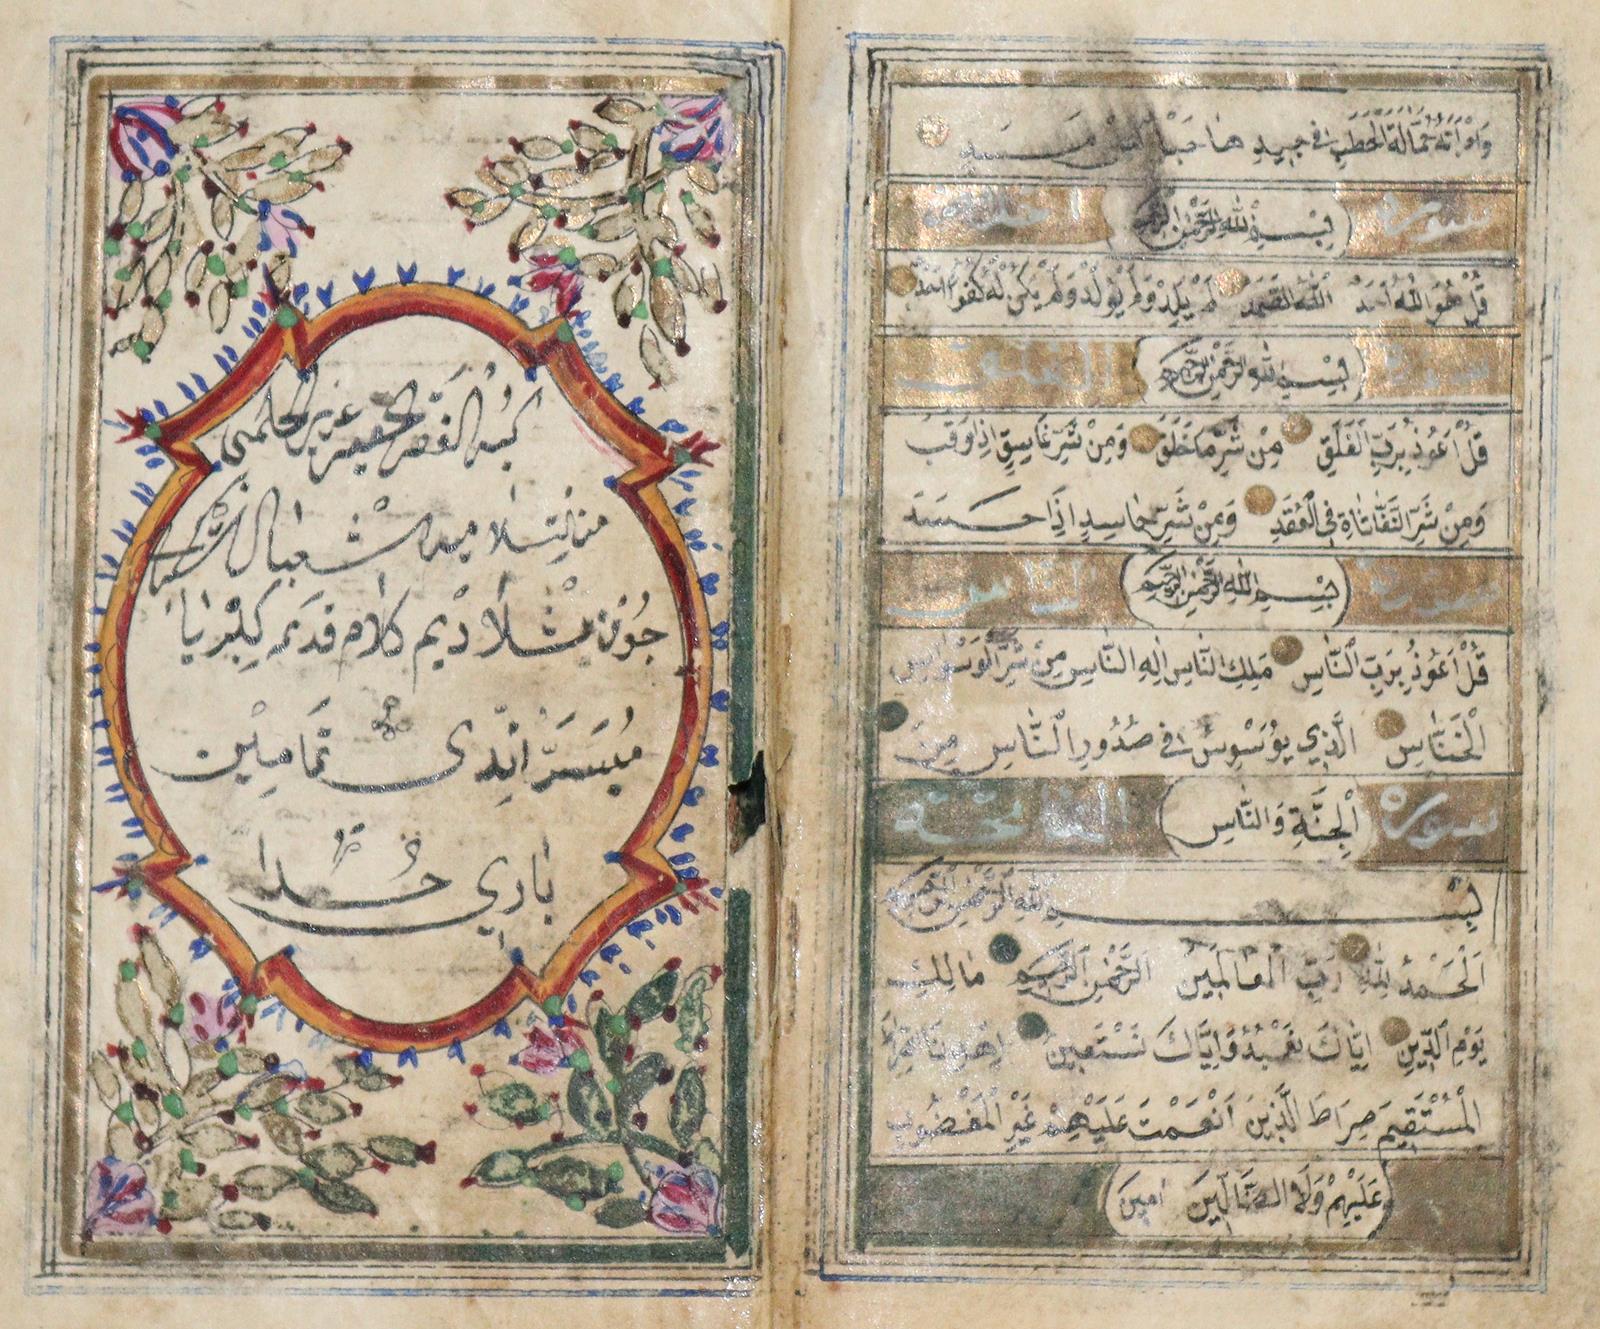 وَامْرَاَتُهُ حَمَّالَةَ الْحَطَبِ فى جِيدِهَا حَبْلٌ مِنْ مَسَدٍ
سورة بِسْــمِ اللهِ الرَّحْمٰنِ الرَّحِيمِ اخلاص
قُلْ هُوَ اللهُ اَحَدٌ اَللهُ الصَّمَدُ لَمْ يَلِدْ وَلَمْ يُولَدْ وَلَمْ يَكُنْ لَهُ كُفُوًا اَحَدٌ
سورة بِسْــمِ اللهِ الرَّحْمٰنِ الرَّحِيمِ الفلق
قُلْ اَعُوذُ بِرَبِّ الْفَلَقِ مِنْ شَرِّ مَا خَلَقَ وَمِنْ شَرِّ غَاسِقٍ اِذَا وَقَبَ
وَمِنْ شَرِّ النَّفَّاثَاةِ فِى الْعُقَدِ وَمِنْ شَرِّ حَاسِدٍ اِذَا حَسَدَ
سورة بِسْــمِ اللهِ الرَّحْمٰنِ الرَّحِيمِ الناس
قُلْ اَعُوذُ بِرَبِّ النَّاسِ مَلِكِ النَّاسِ اِلٰهِ النَّاسِ مِنْ شَرِّ الْوَسْوَاسِ
الْخَنَّاسِ اَلَّذِي يُوَسْوِسُ فى صُدُورِ النَّاسِ مِنَ
سورة الْجِنَّةِ وَالنَّاسِ الفاتحة
بِســــمِ اللهِ الرَّحْمٰنِ الرَّحِيمِ
اَلْحَمْدُ لِلّٰهِ رَبِّ الْعَالَمِينَ اَلرَّحْمٰنِ الرَّحِيمِ مَالِكِ
يَوْمِ الدِّينِ اِيَّاكَ نَعْبُدُ وَاِيَّاكَ نَسْتَعِينُ اِهْدِنَا الصِّرَاطَ
الْمُسْتَقِيمَ صِرَاطَ الَّذِينَ اَنْعَمْتَ عَلَيْهِمْ غَيْرِ الْمَغْضُوبِ
عَلَيْهِمْ وَلَا الضَّالِّينَ اٰمِينَ
كتبه الفقير الحقير عزيز الحلمى
شعبان
چون بشلاديم كلام قديم كبريا
ميسر ايلدى تمامين
بارى خدا